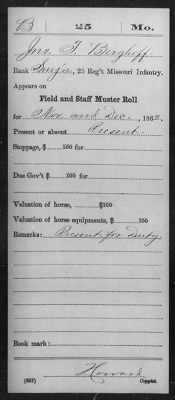 B | 25 | Mo.
Jno. T. Berghoff
Rank Surg'n, 25 Reg't Missouri Infantry.
Appears on
Field and Staff Muster Roll
for Nov. and Dec., 1862.
Present or absent Present.
Stoppage, $ 100 for
Due Gov't $ 100 for
Valuation of horse, $100
Valuation of horse equipments, $ 100
Remarks: Present for Duty.
Book mark:
Howard
(357) Copyist.